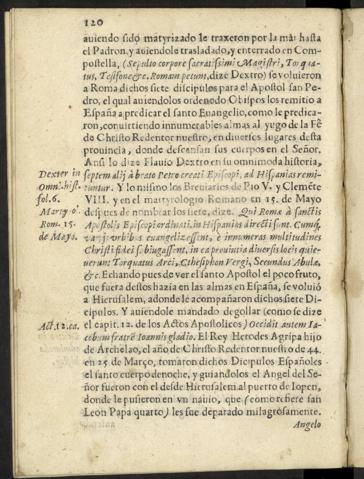 120
auiendo sido matyrizado le traxeron por la mar hasta
el Padron, y auiendole trasladado, y enterrado en Com-
postella, (Sepedio corpore sacratissimi Magistri, Torqua-
tus, Tesifone &c. Romam petunt, dize Dextro) se voluieron
a Roma dichos siete discipulos para el Apostol san Pe-
dro, el qual auiendolos ordenodo Obispos los remitio a
España a predicar el santo Euangelio, como le predica-
ron, conuirtiendo innumerables almas al yugo de la Fê
de Christo Redentor nuestro, en diuersos lugares desta
prouincia, donde descansan sus cuerpos en el Señor.
Ansi lo dize Flauio Dextro en su omnimoda historia,
Dexter in septem alij à brato Petro creati Episcopi, ad Hispanias remi-
Omni. hist. tuntur. Y lo mismo los Breuiarios de Pio V. y Clemēte
fol. 6. VIII. y en el martyrologio Romano en 15. de Mayo
Martyrō. despues de nombrar los siete, dize. Qui Roma à sanctis
Rom. 15. Apostolis Episcopi ordinati, in Hispanias directi sunt. Cumq́;
de Mayo. varijs vrbibus euangelizassent, & innumeras multitudines
Christi fidei subiugassent, in ea prouincia diuersis locis quie-
uerunt Torquatus Acci, Cthesiphon Vergi, Secundus Abulæ,
&c. Echando pues de ver el santo Apostol el poco fruto,
que fuera destos hazia en las almas en España, se voluiò
a Hierusalem, adonde le acompañaron dichos siete Di-
cipulos. Y auiendole mandado degollar (como se dize
Act. 12. ca. el capit. 12. de los Actos Apostolicos) Occidit autem Ia-
cobum fratrē Ioannis gladio. El Rey Herodes Agripa hijo
de Archelao, el año de Christo Redentor nuestro de 44.
en 25. de Março, tomaron dichos Dicipulos Españoles
el santo cuerpo denoche, y guiandolos el Angel del Se-
ñor fueron con el desde Hierusalem al puerto de Iopen,
donde le pusieron en vn nauio, que (como refiere san
Leon Papa quarto) les fue deparado milagrosamente.
Angelo